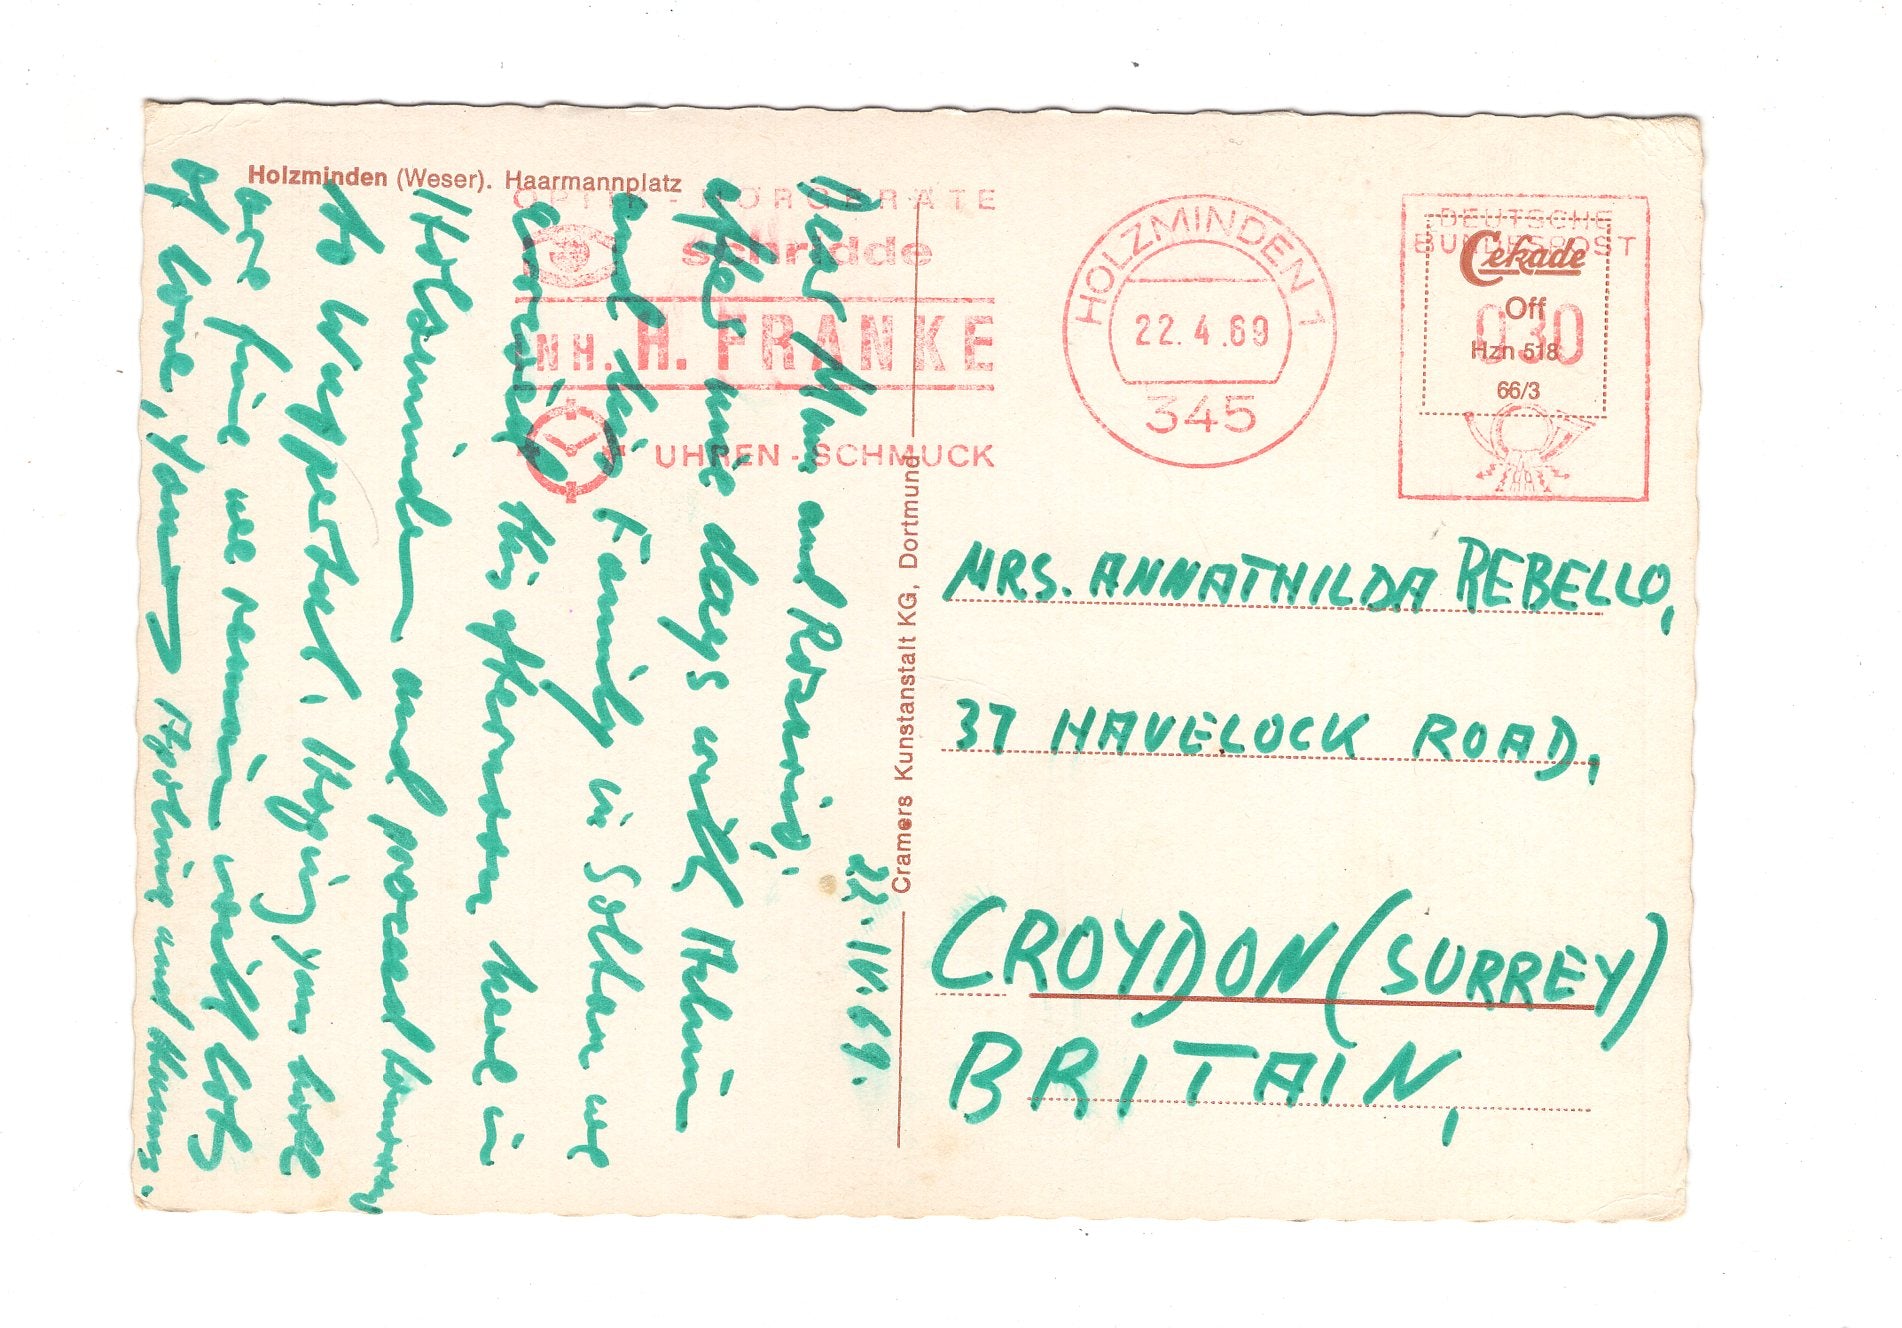 Holzminden (Weser). Haarmannplatz
OPTIK - HÖRGERÄTE
schridde
INH. H. FRANKE
UHREN - SCHMUCK
HOLZMINDEN 1
22.4.69
345
DEUTSCHE
BUNDESPOST
030
Cekade
Off
Hzn 518
66/3
Cramers Kunstanstalt KG, Dortmund
22.IV.69.
Dear Mum and
after nice days with
and his Family in Soltau we
arrived this afternoon here in
Holzminden and proceed tomorrow
to Wuppertal. Hoping you both
are fine we remain with lots
of love, Yours
MRS. ANNATHILDA REBELLO,
37 HAVELOCK ROAD,
CROYDON (SURREY)
BRITAIN,